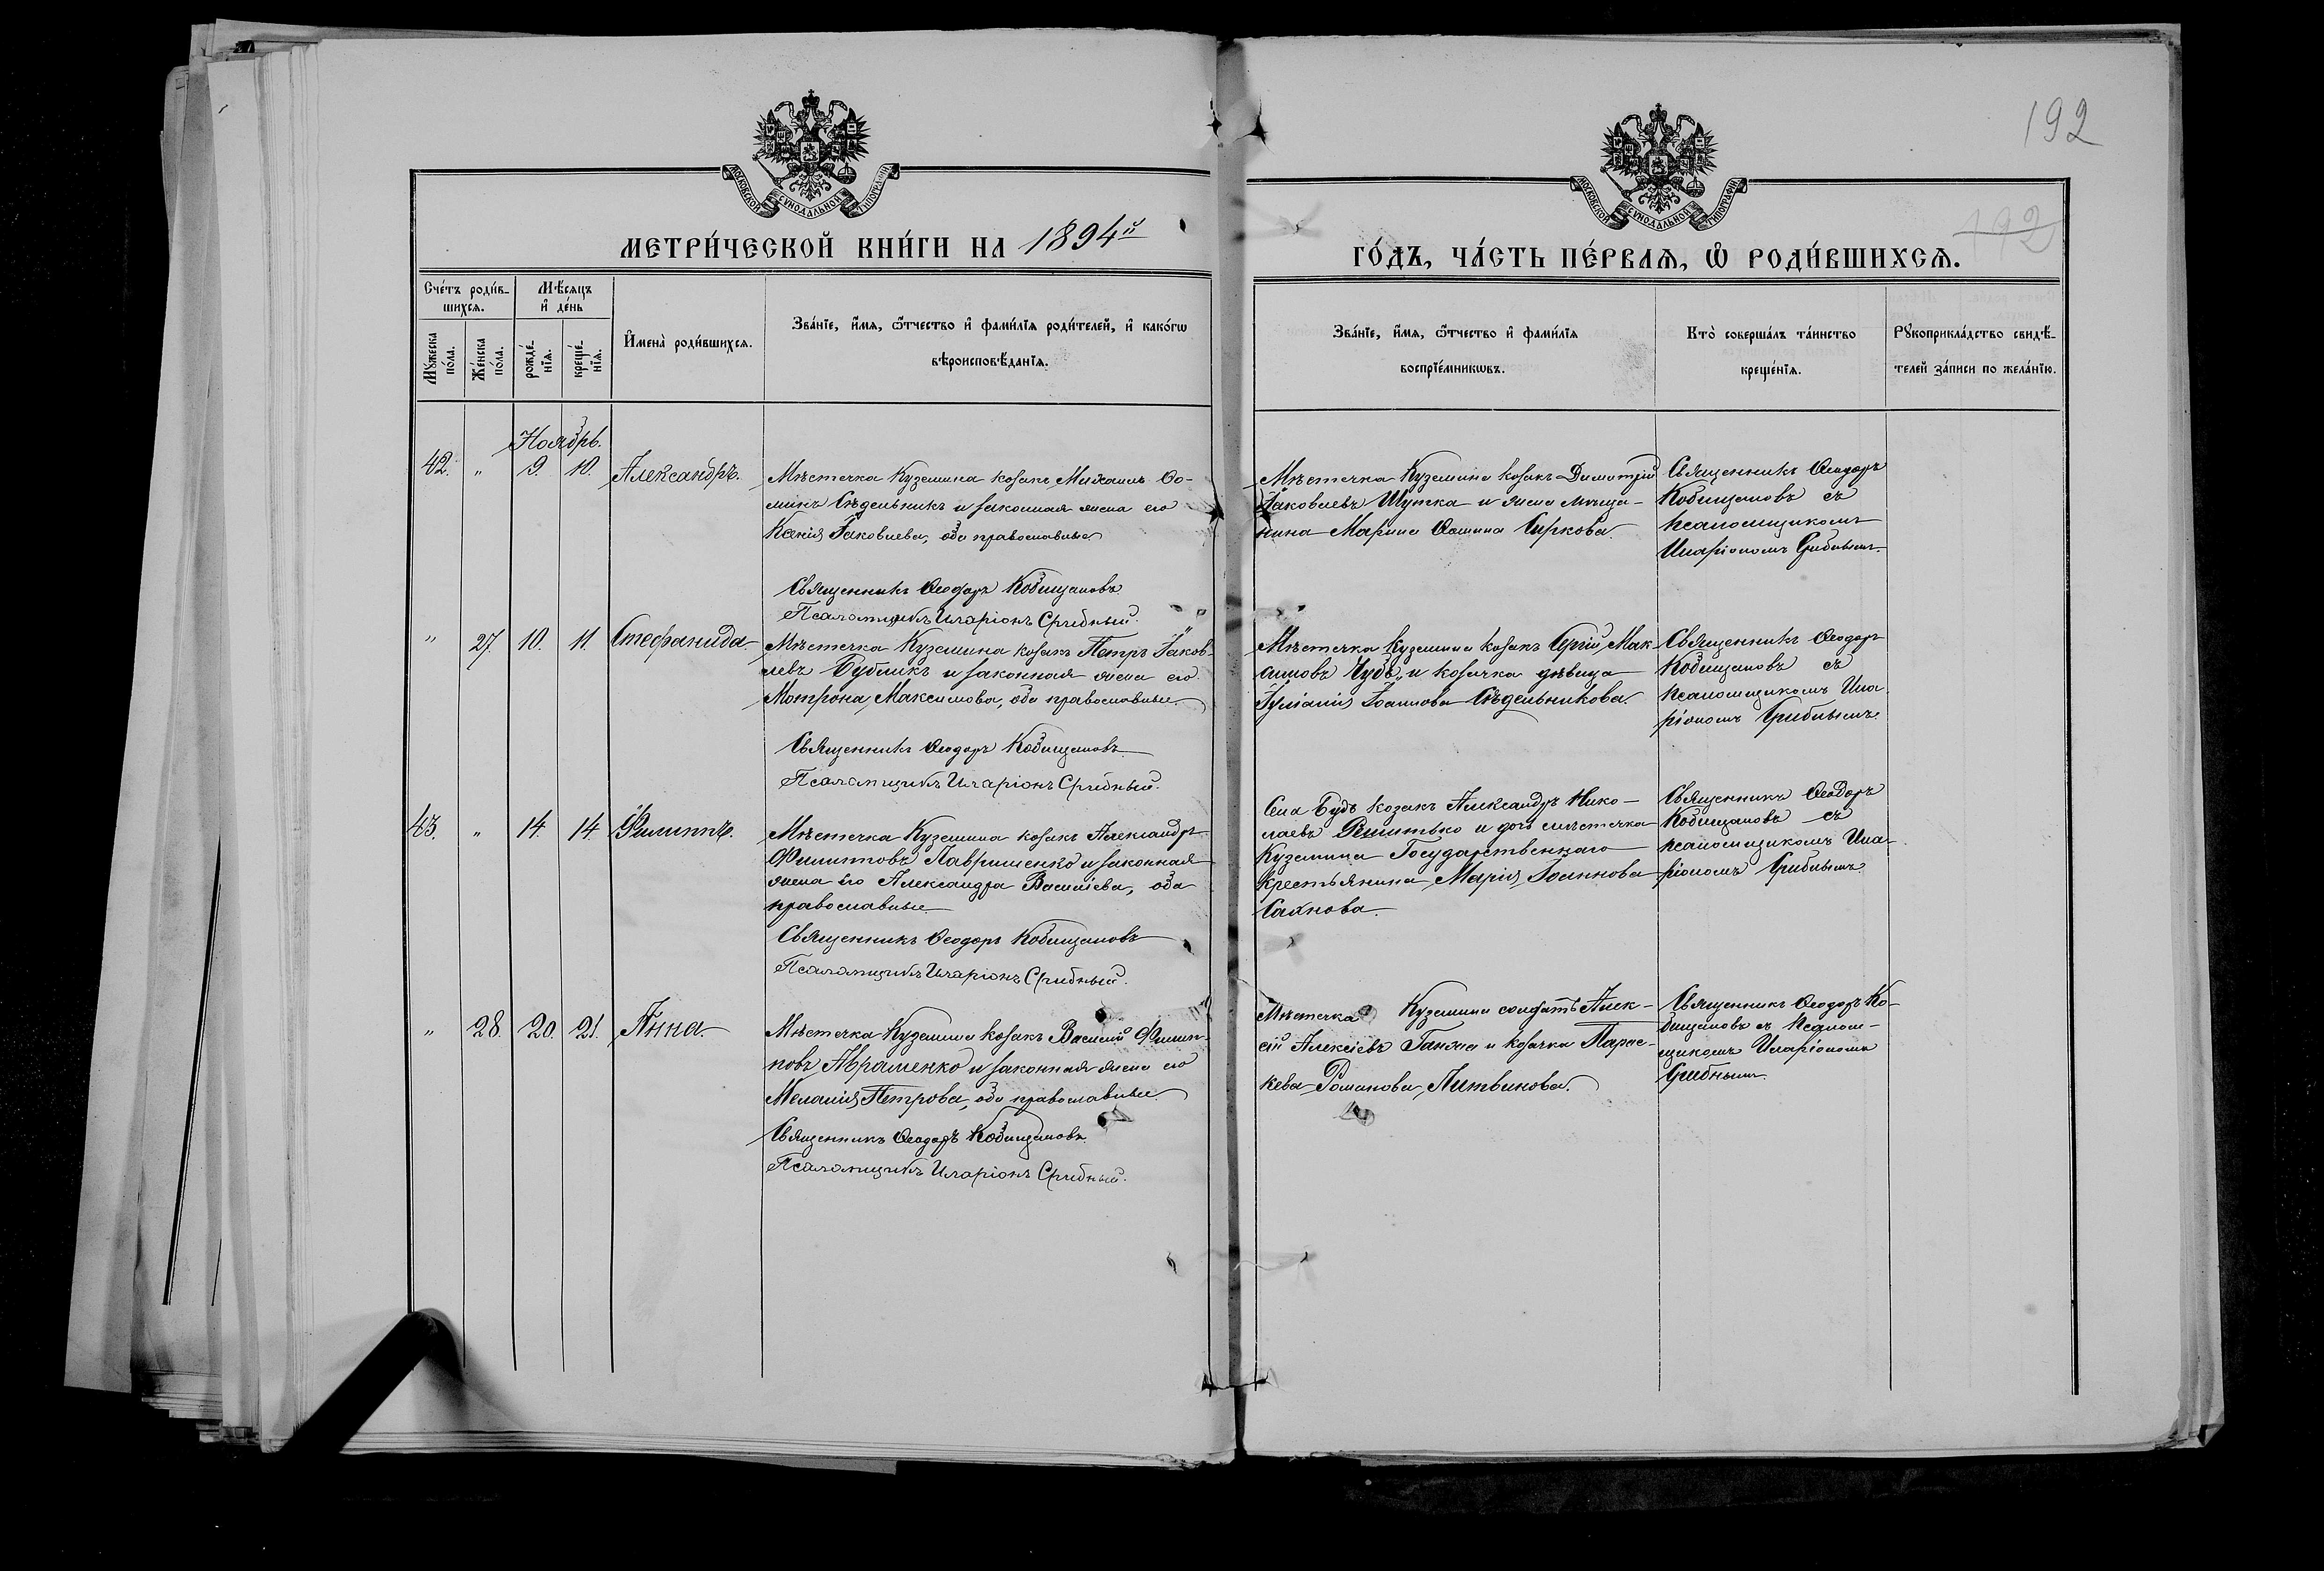 192
МОСКОВСКОЙ СѴНОДАЛЬНОЙ ТИПОГРАФІИ
МОСКОВСКОЙ СѴНОДАЛЬНОЙ ТИПОГРАФІИ
МЕТРИ́ЧЕСКОЙ КНИ́ГИ НА 1894й
ГО́ДЪ, ЧА́СТЬ ПЕ́РВАѦ, Ѽ РОДИ́ВШИХСѦ.
192
Сче́тъ роди́в-
шихсѧ.
Мꙋ́жеска
по́ла.
Же́нска
по́ла.
Мѣ́сѧцъ
и҆ де́нь
рожде́-
нїѧ.
креще́-
нїѧ.
И҆мена̀ роди́вшихсѧ.
Зва́нїе, и҆́мѧ, ѻ҆́тчество и҆ фами́лїѧ роди́телей, и҆ како́гѡ
вѣроисповѣ́данїѧ.
Зва́нїе, и҆́мѧ, ѻ҆́тчество и҆ фами́лїѧ
воспрїе́мникѡвъ.
Кто̀ соверша́лъ та́инство
креще́нїѧ.
Рꙋкоприкла́дство свидѣ́-
телей за́писи по жела́нїю.
Ноябрь.
42. " 9. 10. Александръ.
Мѣстечка Куземина козакъ Михаилъ Ѳо-
минъ Сѣдельникъ и законная жена его
Ксенія Іаковлева, оба православные
Священникъ Ѳеодоръ Кобищановъ
Псаломщикъ Иларіонъ Срибный.
Мѣстечка Куземина козакъ Димитрій
Іаковлевъ Шутка и жена мѣща-
нина Марина Сиркова.
Священникъ Ѳеодоръ
Кобищановъ съ
псаломщикомъ
Иларіономъ Срибнымъ.
" 27. 10. 11. Стефанида.
Мѣстечка Куземина козакъ Петръ Іаков-
левъ Бубликъ и законная жена его
Матрона Максимова, оба православные.
Священникъ Ѳеодоръ Кобищановъ
Псаломщикъ Иларіонъ Срибный.
Мѣстечка Куземина козакъ Сергій Мак
симовъ Чубъ и козачка дѣвица
Іуліанія Іоаннова Сѣдельникова.
Священникъ Ѳеодоръ
Кобищановъ съ
псаломщикомъ Ила
ріономъ Срибнымъ.
43. " 14. 14. Филиппъ.
Мѣстечка Куземина козакъ Александръ
Филипповъ Лавриненко и законная
жена его Александра Василіева, оба
православные.
Священникъ Ѳеодоръ Кобищановъ
Псаломщикъ Иларіонъ Срибный.
Села Будъ козакъ Александръ Нико-
лаевъ Решитько и дочь мѣстечка
Куземина Государственнаго
крестьянина Марія Іоаннова
Сахнова.
Священникъ Ѳеодоръ
Кобищановъ съ
псаломщикомъ Ила-
ріономъ Срибнымъ.
" 28. 20. 21. Анна.
Мѣстечка Куземина козакъ Василій Филип-
повъ Авраменко и законная жена его
Меланія Петрова, оба православные.
Священникъ Ѳеодоръ Кобищановъ
Псаломщикъ Иларіонъ Срибный.
Мѣстечка Куземина солдатъ Алек-
сій Алексіевъ Ганжа и козачка Парас-
кева Романова Литвинова.
Священникъ Ѳеодоръ Ко-
бищановъ съ псалом-
щикомъ Иларіономъ
Срибнымъ.